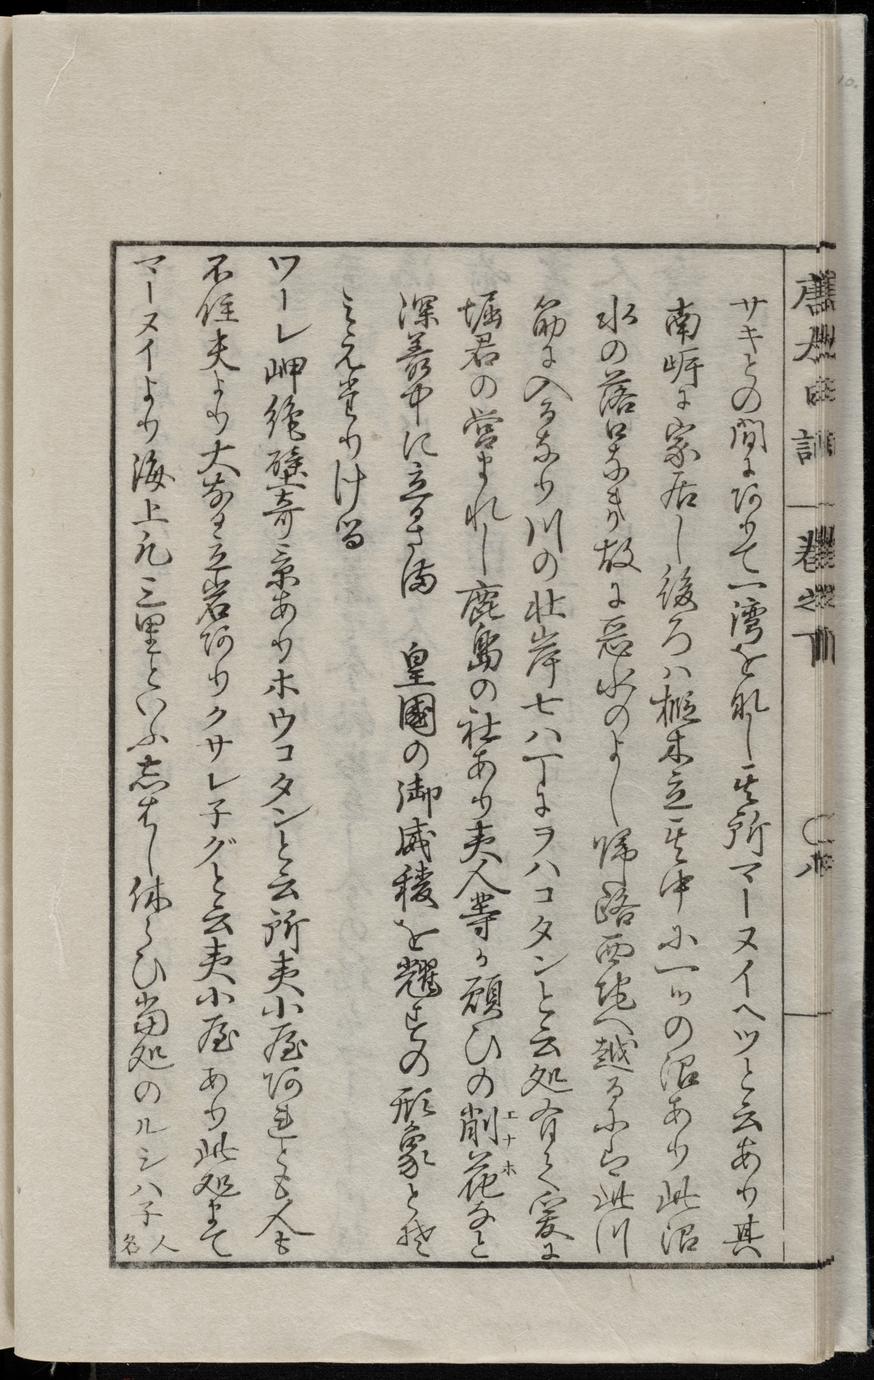 サキとの間に阿りて一湾を形し其所マーヌイヘツと云あり其
南崕に家居し後ろハ椴木立其中に一ツの沼あり此沼
水の落口なき故に悪水のよし帰路西地へ越るには此川
筋に入るなり川の北岸七八丁にヲハコタンと云処有て爰に
堀君の営まれし鹿島の社あり夷人等か願ひの削花なと
エナホ
深叢中に立るさま 皇國の御威稜を耀すの形象とそ
ミえ侍りける
ワーレ岬絶壁奇景ありホウコタンと云所夷小屋阿れとも人も
不住夫より大なる立岩阿りクサレ子グと云夷小屋あり此処まて
マーヌイより海上凡三里といふ志はし休らひ當処のルシハ子 人名
卷之下